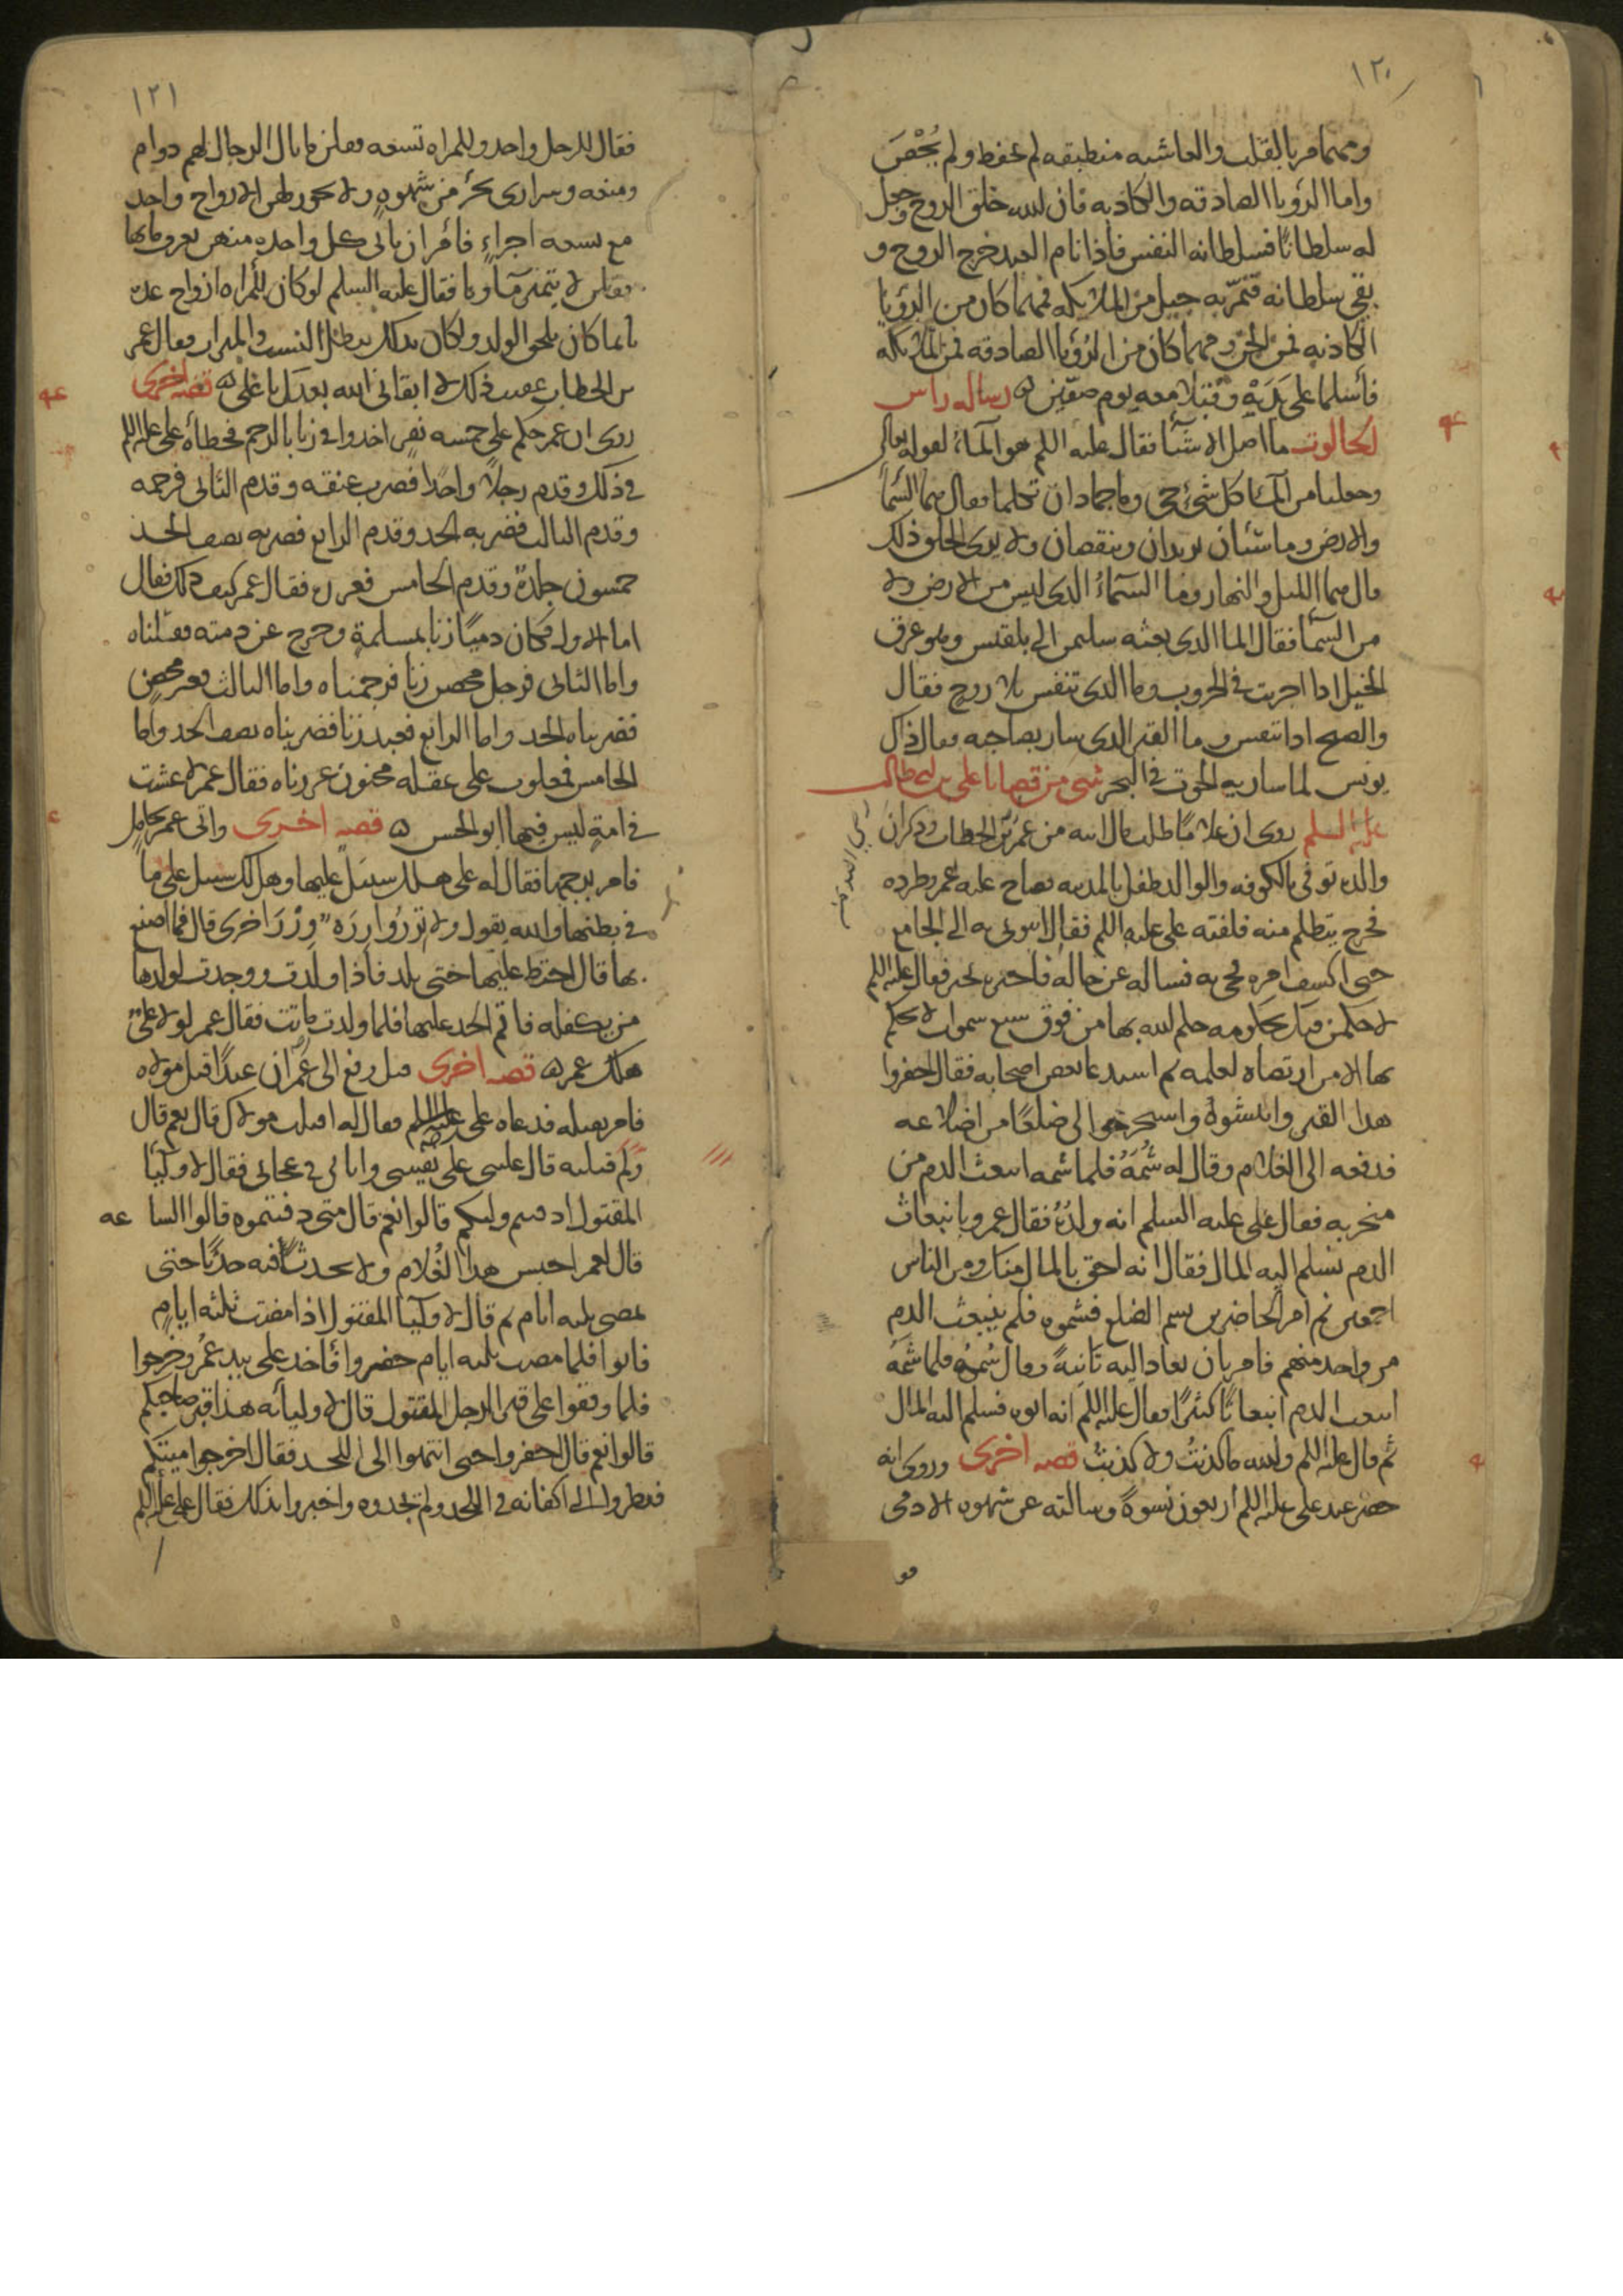 ١٢٠
ومهما مر بالقلب والغاشيه منطبقه لم يحفظ ولم يُحْصَ
واما الرؤيا الصادقه والكاذبه فان لله خلق الروح وجعل
له سلطانًا فسلطانه النفس فاذا نام العبد خرج الروح و
بقى سلطانه فتمرّ به جيل من الملائكه فمهما كان من الرؤيا
الكاذبه فمن الجن ومهما كان من الرؤيا الصادقه فمن الملائكه
فأسلما على يَدَيْهْ وقُتِلا معه يوم صفّين ۵ رساله راس
الجالوت ما اصل الاشيآ فقال عليه السلم هو المآء لقوله تعالى
وجعلنا من المآء كل شئ حى وما جمادان تكلما فقال هما السّمآ
والارض وما شيئان يزيدان وينقصان ولا يرى الخلق ذلك
قال هما الليل والنهار وما السمآءُ الذى ليس من الارض ولا
من السمآ فقال الما الذى بعثه سليمن الى بلقيس وهو عرق
الخيل اذا اجريت فى الحروب وما الذى تنفس بلا روح فقال
والصبح اذا تنفس وما القبر الذى سار بصاحبه فقال ذاك
يونس لما سار به الحوت فى البحر شى من قضايا على بن ابى طالب
عليه السلم روى ان غلامًا طلب مال ابيه من عمر بن الخطاب وذكر ان
والده توفى بالكوفه والولد طفل بالمدينه فصاح عليه عمر وطرده
فخرج يتظلم منه فلقيه على عليه السلم فقال ايتونى به الى الجامع
حتى اكشف امره فجى به فساله عن حاله فاخبره بخبره فقال عليه السلم
لاحكمن فيك بحكومه حكم الله بها من فوق سبع سموات لا يحكم
بها الا من ارتضاه لعلمه ثم استدعا بعض اصحابه فقال احفروا
هذا القبر وانبشوهُ واستخرجوا لى ضلعًا من اضلاعه
فدفعه الى الغلام وقال له شُمَهُ فلما شمه انبعث الدم من
منخريه فقال على عليه السلم انه ولدُهُ فقال عمر وبا نبعاث
الدم نسلم اليه المال فقال انه احق بالمال منك ومن الناس
اجمعين ثم امر الحاضرين بشم الضلع فشموه فلم ينبعث الدم
من واحد منهم فامر بان يعاد اليه ثانيةً وقال شُمهُ فلما شمهُ
انبعث الدم انبعاثًا كثيرًا فقال عليه السلم انه ابوه فسلم اليه المال
ثم قال عليه السلم والله ما كذبتُ ولا كذبتُ قصه اخرى وروى انه
حضر عند على عليه السلم اربعون نسوةً وسالته عن شهوه الادمى
١٢١
فقال للرجل واحد وللمراه تسعه فقلن ما بال الرجال لهم دوام
ومتعه وسرارى بجزء من شهوه ولا يجوز لهن الا زواج واحد
مع تسعه اجزاءٍ فأمر ان ياتى كل واحده منهن بعروما بها
فقلن لا يتميز مآونا فقال عليه السلم لو كان للمراه ازواج عده
بايما كان يلحق الولد ولكان بذلك يبطل النسب والميراث فقال عمر
بن الخطاب عقيب ذلك لا ابقانى الله بعدك يا على ۵ قصه اخرى
روى ان عمر حكم على خمسه نفر اخدوا فى زنا بالرجم فخطأه على عليه السلم
فى ذلك وقدم رجلًا واحدًا فضرب عنقه وقدم الثانى فرجمه
وقدم الثالث فضربه الحد وقدم الرابع فضربه نصف الحد
خمسون جلدةً وقدم الخامس فعزره فقال عمر كيف ذلك فقال
اما الاول فكان ذميًا زنا بمسلمةٍ وخرج عن ذمته فقتلناه
واما الثانى فرجل محصن زنا فرجمناه واما الثالث فغير محصن
فضربناه الحد واما الرابع فعبد زنا فضربناه نصف الحد واما
الخامس فمغلوب على عقله مجنون عزرناه فقال عمر لا عشت
فى امةٍ ليس فيها ابو الحسن ۵ قصه اخرى واتى عمر بحامل
فامر برجمها فقال له على هل لك سبيل عليها وهل لك سبيل على ما
فى بطنها والله يقول ولا تزرُ وازره وزرَ اخرى قال فما اصنع
بها قال احتط عليها حتى يلد فاذا ولدت ووجدت لولدها
من يكفله فاقم الحد عليها فلما ولدت ماتت فقال عمر لولا علىٌّ
هلك عمر ۵ قصه اخرى قيل رفع الى عُمر ان عبدًا قتل مولاه
فامر بقتله فدعاه على عليه السلم فقال له اقتلت مولاك قال نعم قال
ولم قتلته قال غلبنى على نفسى واتانى فى عجانى فقال لاوليآ
المقتول ادفنتم وليكم قالوا نعم قال متى دفنتموه قالوا السا عه
قال لعمر احبس هذا الغلام ولا يحدثْ فيه حدثًا حتى
يمضى ثلثه ايام ثم قال لاوليآ المقتول اذا مضت ثلثه ايامٍ
فاتوا فلما مضت ثلثه ايام حضروا فأخد على بيد عُمر وخرجوا
فلما وقفوا على قبر الرجل المقتول قال لاوليائه هذا قبر صاحبكم
قالوا نعم قال احفروا حتى انتهوا الى اللحد فقال اخرجوا ميتكم
فنظروا الى اكفانه فى اللحد ولم يجدوه واخبروا بذلك فقال على عليه السلم